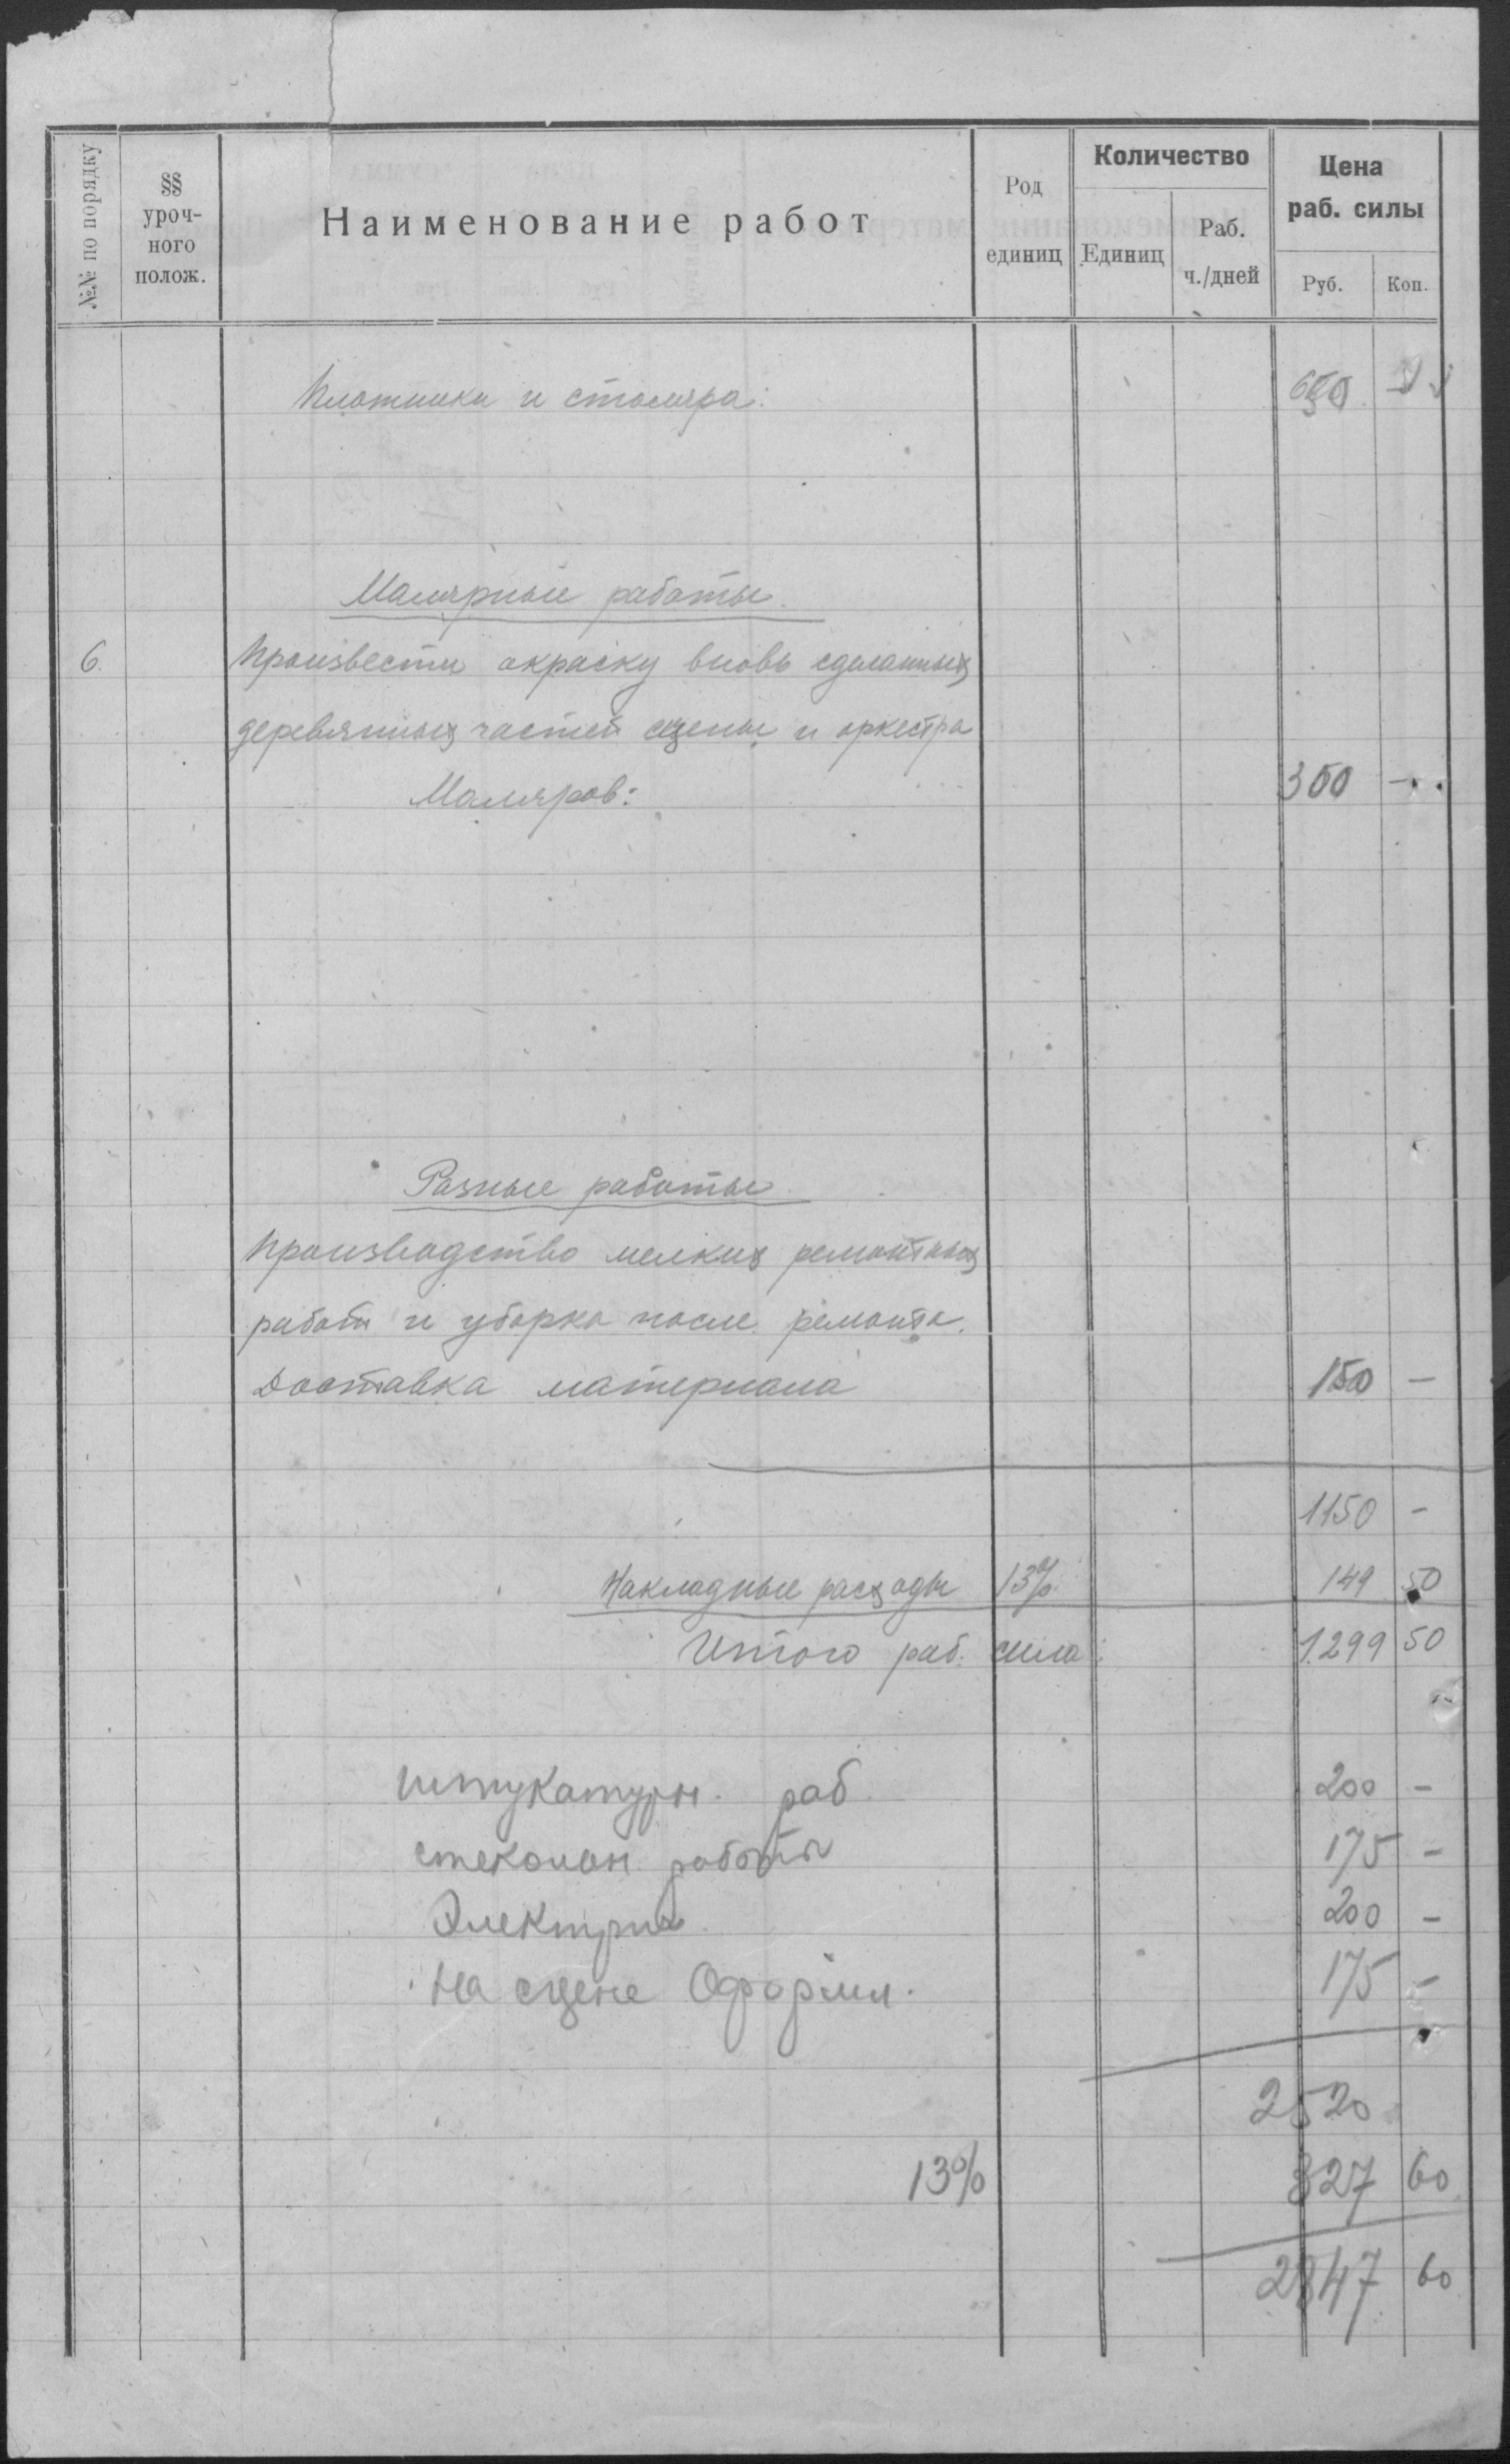 №№ по порядку
§§ уроч-ного полож.
Наименование работ
Род единиц
Количество
Единиц
Раб. ч./дней
Цена раб. силы
Руб.
Коп.
Плотники и столяра: 650 –
Малярные работы.
6. Произвести окраску вновь сделанных
деревянных частей сцены и оркестра
Маляров: 350 –
Разные работы.
Производство мелких ремонтных
работ и уборка после ремонта.
Доставка материала 150 –
1150 –
Накладные расходы 13% 149 50
Итого раб. сила: 1299 50
Штукатурн. раб. 200 –
стекольн. работы 175 –
Электри 200 –
На сцене Оформл. 175 –
2520
13% 327 60
2847 60